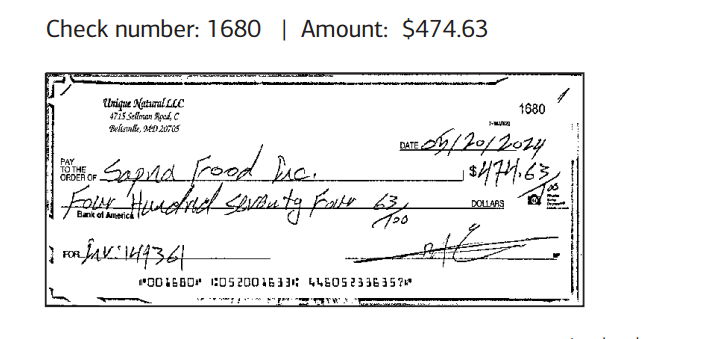 Check number: 1680 | Amount: $474.63
Unique Natural LLC
4715 Sellman Road, C
Beltsville, MD 20705
1680
DATE 05/20/2024
PAY TO THE ORDER OF Sapna Food Inc. $474.63/100
Four Hundred Seventy Four 63/100 DOLLARS
Bank of America
FOR Inv: 149361
⑈001680⑈ ⑆052001633⑆ 446052336357⑈